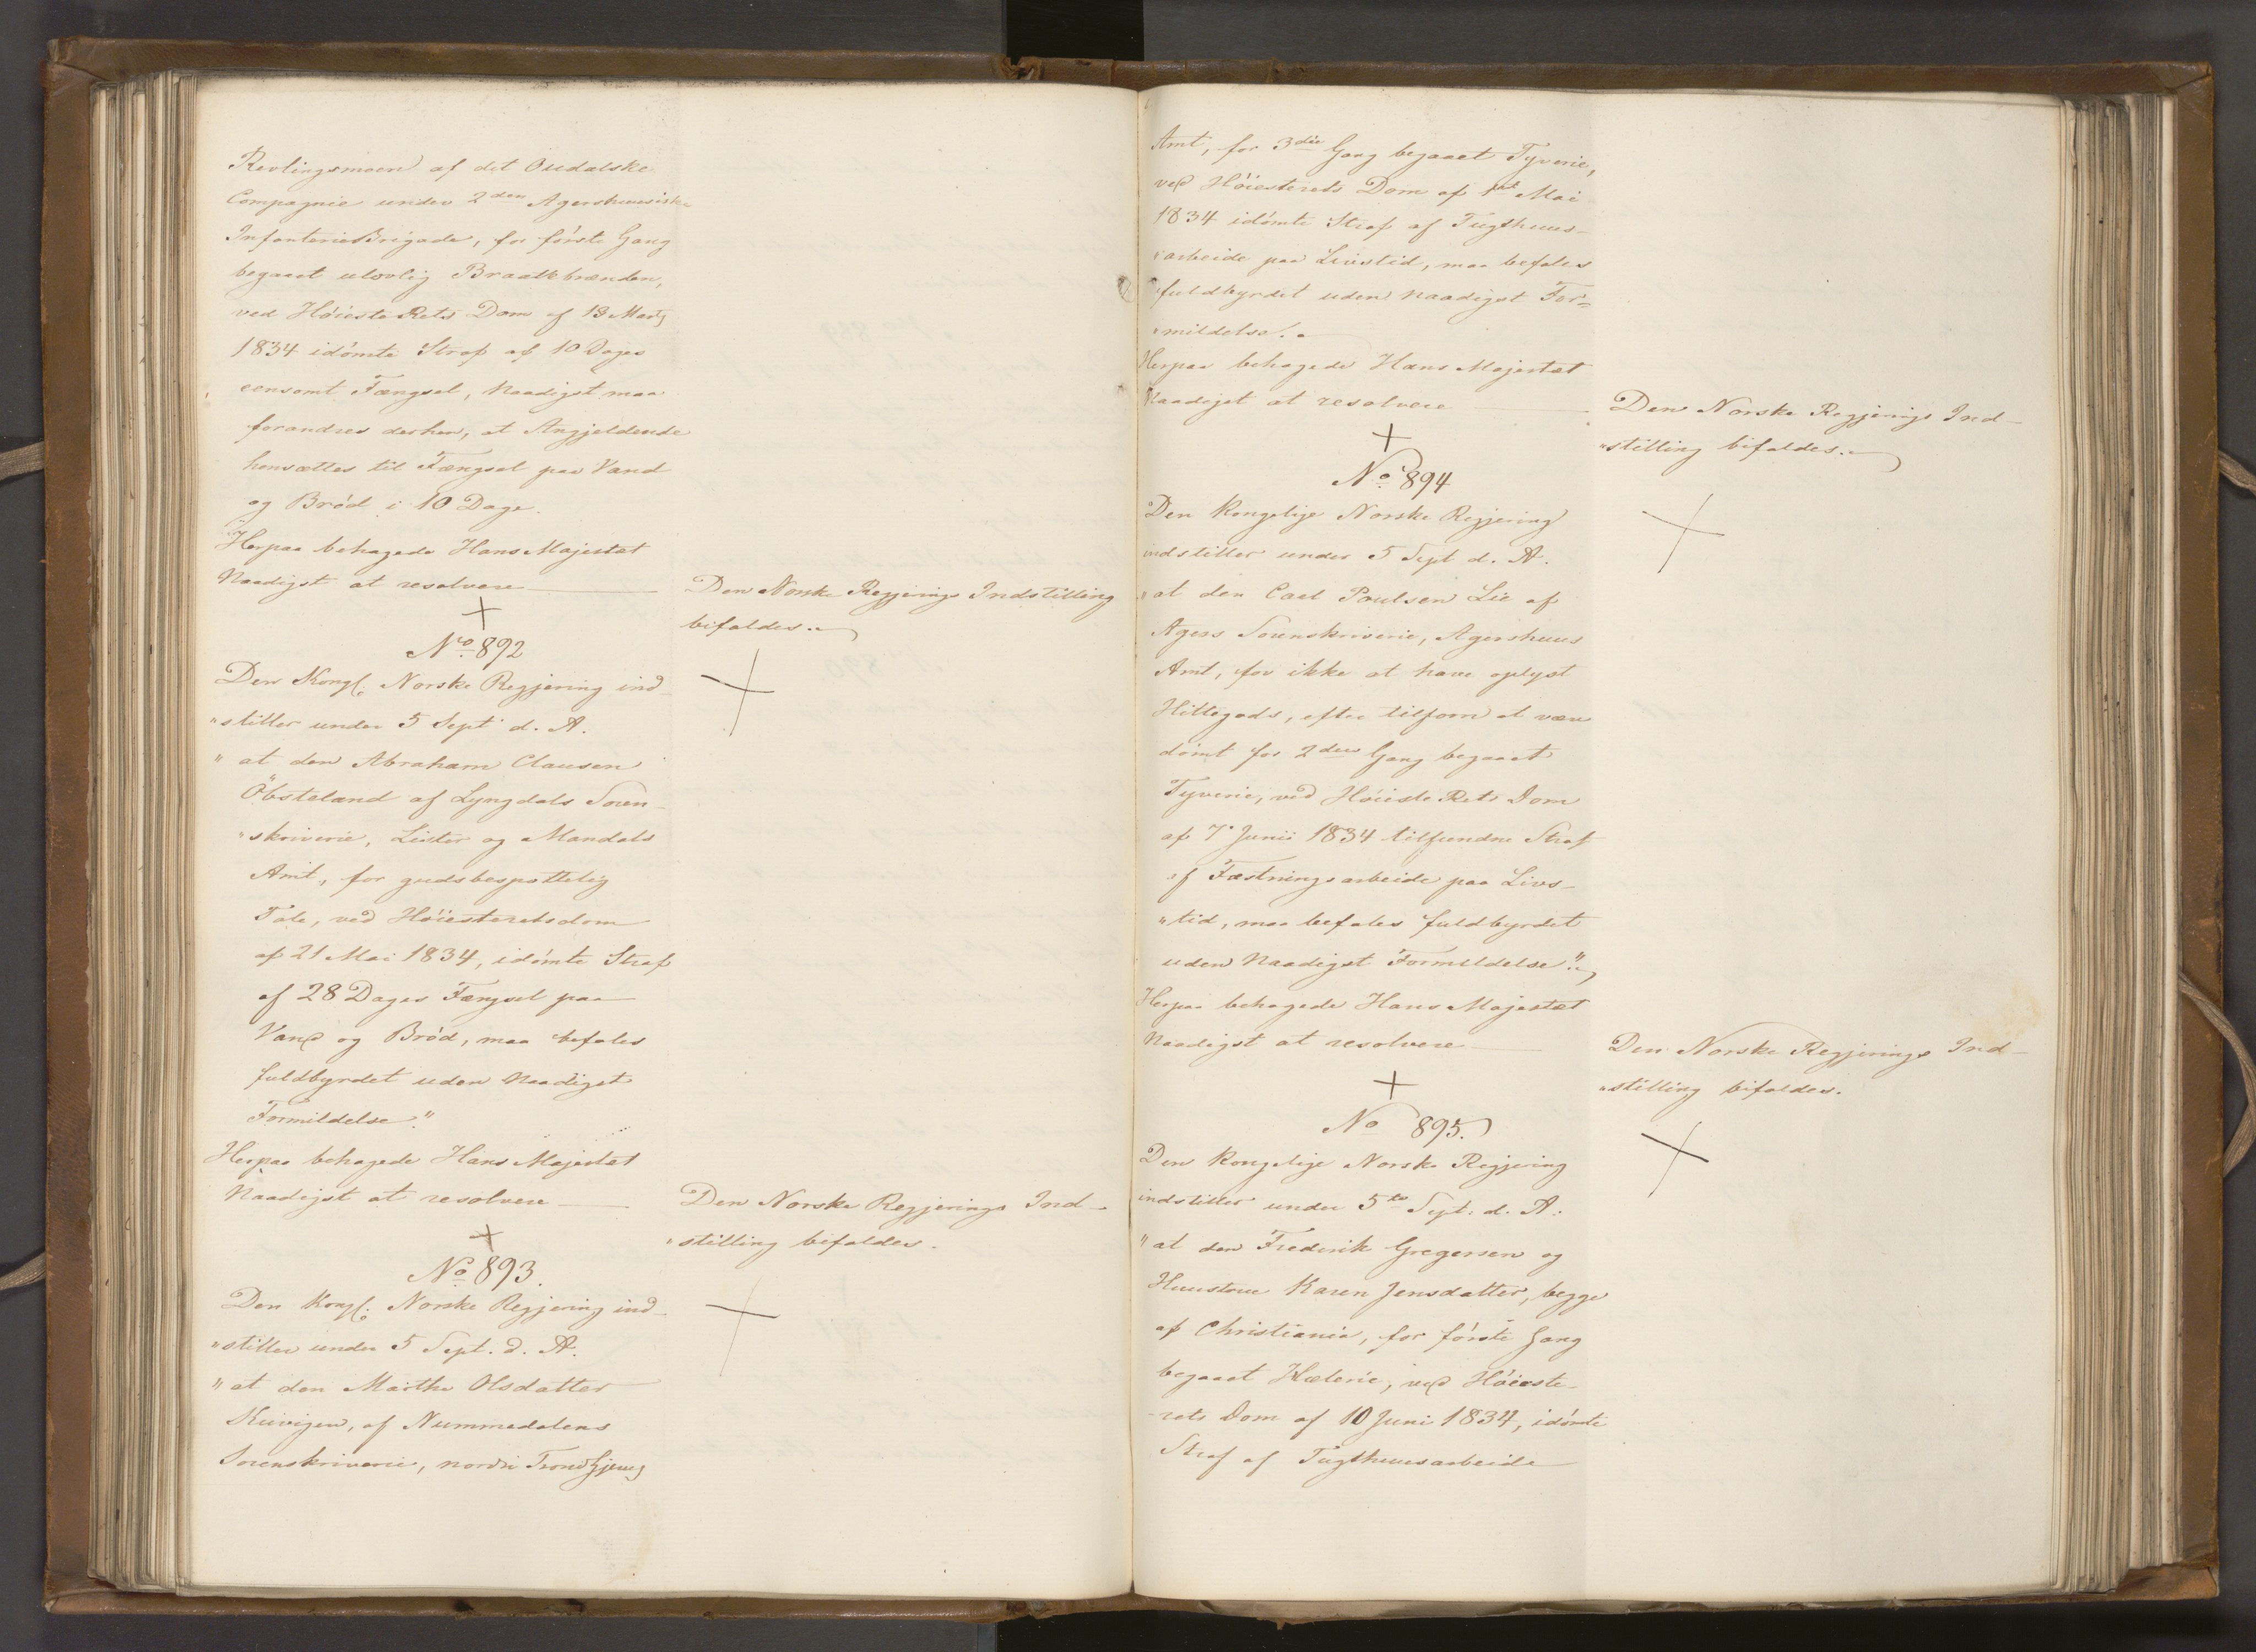 Revlingsmoen af det Oudalske
Compagnie under 2den Agershuusiske
InfanterieBrigade, for förste Gang
begaaet ulovlig Braatebrænden,
ved HöiesteRets Dom af 13 Marts
1834 idömte Straf af 10 Dages
eensomt Fængsel, Naadigst maa
forandres derhen, at Angjeldende
hensættes til Fængsel paa Vand
og Bröd i 10 Dage.
Herpaa behagede Hans Majestæt
Naadigst at resolvere
Den Norske Regjerings Indstilling
bifaldes.
No. 892
Den Kongl. Norske Regjering ind-
"stiller under 5 Sept d. A.
" at den Abraham Clausen
Öbsteland af Lyngdals Soren-
"skriverie, Lister og Mandals
Amt, for gudsbespottelig
Tale, ved Höiesteretsdom
af 21 Mai 1834, idömte Straf
af 28 Dages Fængsel paa
Vand og Bröd, maa befales
fuldbyrdet uden Naadigst
Formildelse."
Herpaa behagede Hans Majestæt
Naadigst at resolvere
Den Norske Regjerings Ind-
"stilling bifaldes.
No. 893.
Den Kongl. Norske Regjering ind-
"stiller under 5 Sept. d. A.
" at den Marthe Olsdatter
af Nummedalens
Sorenskriverie, nordre Trondhjems
Amt, for 3die Gang begaaet Tyverie,
ved Höiesterets Dom af 1st Mai
1834 idömte Straf af Tugthuus-
"arbeide paa Livstid, maa befales
fuldbyrdet uden Naadigst For-
"mildelse".
Herpaa behagede Hans Majestæt
Naadigst at resolvere
Den Norske Regjerings Ind-
"stilling bifaldes.
No. 894
Den Kongelige Norske Regjering
indstiller under 5 Sept d. A.
"at den Carl Poulsen Lie af
Agers Sorenskriverie, Agershuus
Amt, for ikke at have oplyst
Hittegods, efter tilforn at være
dömt for 2den Gang begaaet
Tyverie, ved HöiesteRets Dom
af 7 Junii 1834 tilfundne Straf
af Fæstningsarbeide paa Livs-
"tid, maa befales fuldbyrdet
uden Naadigst Formildelse".
Herpaa behagede Hans Majestæt
Naadigst at resolvere
Den Norske Regjerings Ind-
"stilling bifaldes.
No 895.
Den Kongelige Norske Regjering
indstiller under 5te Sept. d. A.
"at den Frederik Gregersen og
Huustrue Karen Jensdatter, begge
af Christiania, for förste Gang
begaaet Hælerie, ved Höieste-
-rets Dom af 10 Juni 1834, idömte
Straf af Tugthuusarbeide